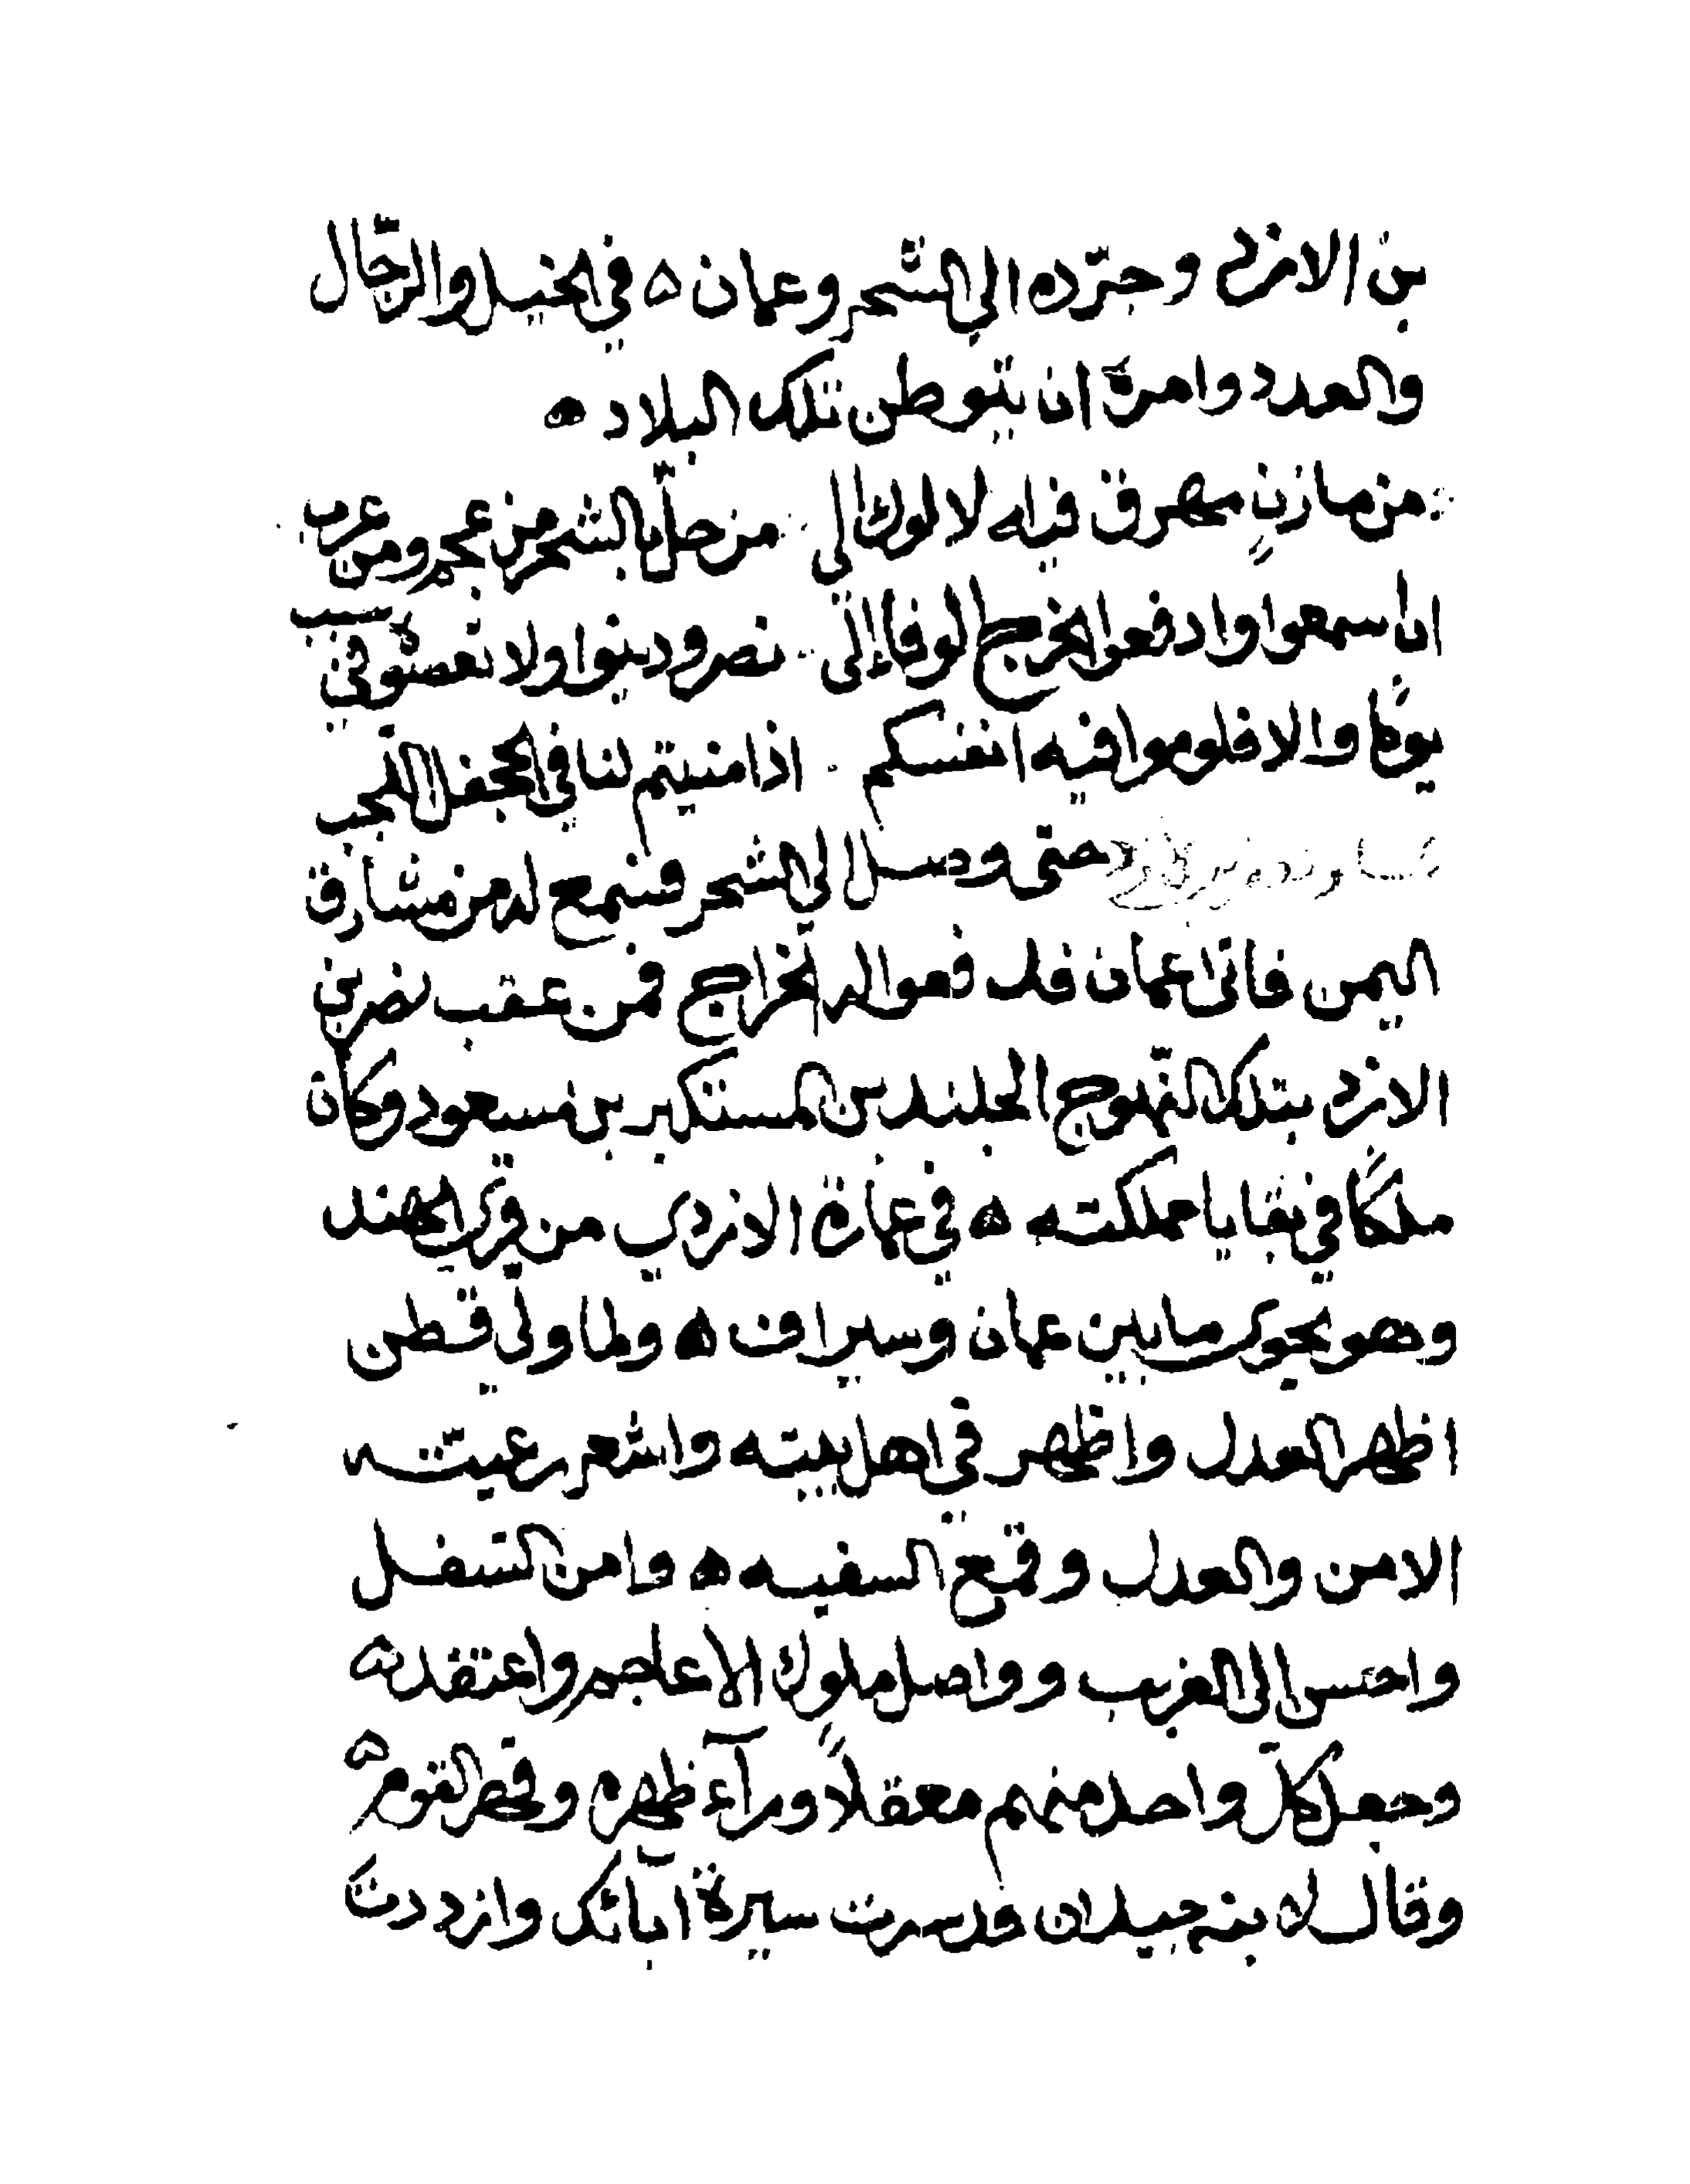 بن الازد وجرّده الى الشحر وعمان ه في الخيل والرجّال
والعدد وامره ان يتوطن تلك البلاد ه
من مازن مهرق فيه لالوكا لى من حلّ بالشحر من عجم ومن عرب
انا سمعوا وادفعوا الخرج الوفا إلى نصر ودينوا ولا تعصوه في سبب
يومًا والا فلوموا فيه انفسكم اذا منيتم لنا في الجحفل اللجب
حتى وصل الى الشحر فسمع له من مشارق
اليمن فاتى عمان فدفعوا له الخراج فمن عقب نصر بن
الازد بتلك النهوج الجلند بن المستكبر بن مسعود وكان
ملكًا في بقايا مملكته ه في عمان الازدي من قرى الهند
وهو يحوي ما بين عمان وسيراف ه ولما ولي قطن
اظهر العدل واظهر في اهل بيته واشعر رعيته
الامن والعدل وقمع السفيه ه وامن السفل
واحسن الى الغريب وواصل ملوك الاعاجم واعتقد ه
وجعل كل واحد منهم معقلاً ورآء ظهره وقهر القوم ه
وقال لابنه جيدان قد سرت سيرة آبائك وازددت